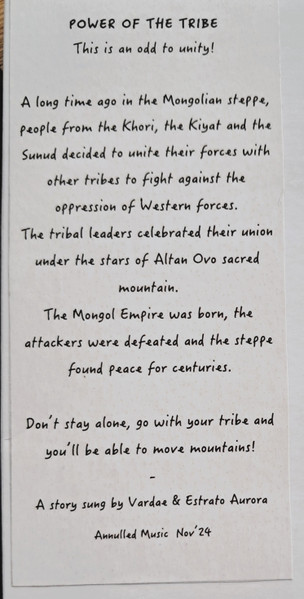 POWER OF THE TRIBE
This is an odd to unity!
A long time ago in the Mongolian steppe,
people from the Khori, the Kiyat and the
Sunud decided to unite their forces with
other tribes to fight against the
oppression of Western forces.
The tribal leaders celebrated their union
under the stars of Altan Ovo sacred
mountain.
The Mongol Empire was born, the
attackers were defeated and the steppe
found peace for centuries.
Don't stay alone, go with your tribe and
you'll be able to move mountains!
-
A story sung by Vardae & Estrato Aurora
Annulled Music Nov'24